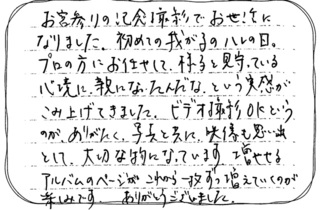 お宮参りの記念撮影でお世話に
なりました。初めての我が子のハレの日。
プロの方にお任せして、様子を見守っている
心境に、親になったんだな、という実感が
こみ上げてきました。ビデオ撮影OKという
のが、ありがたく、写真と共に、映像も思い出
として、大切な的になっています。増やせる
アルバムのページが これから一枚ずつ増えていくのが
楽しみです。ありがとうございました。